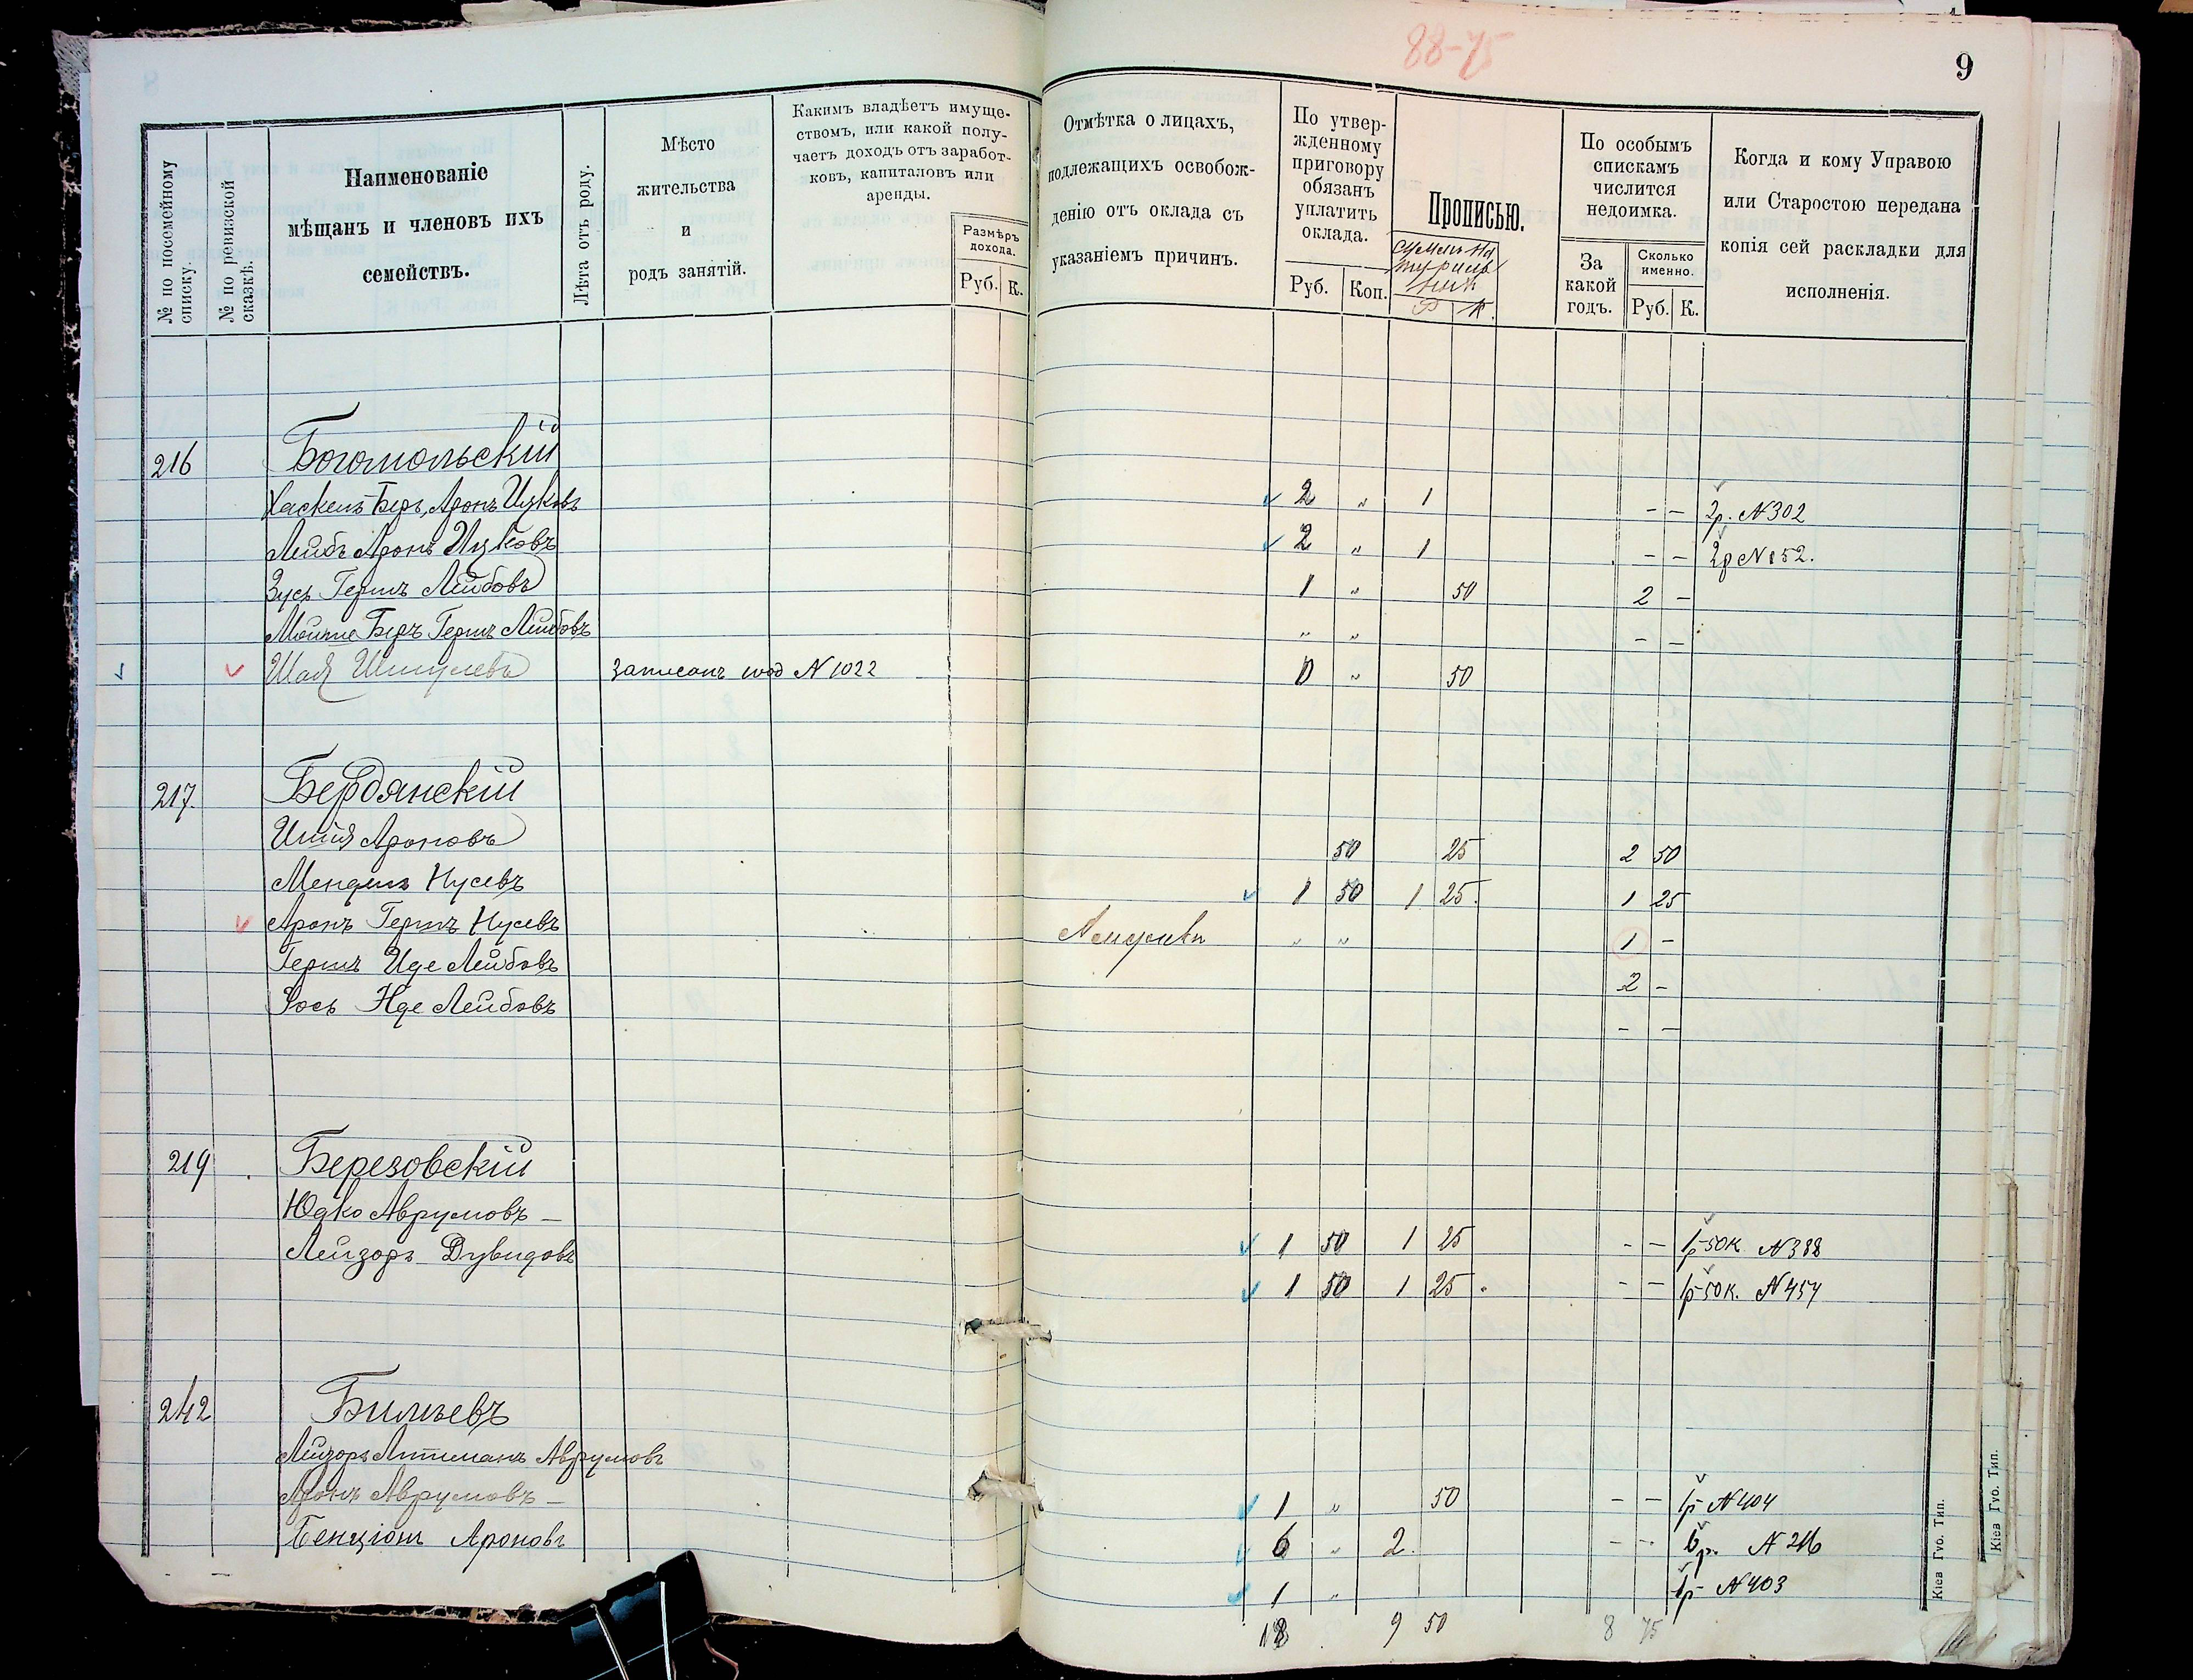 88-75
9
№ по посемейному списку.
№ по ревизской сказкѣ.
Наименованіе мѣщанъ и членовъ ихъ семействъ.
Лѣта отъ роду.
Мѣсто жительства и родъ занятій.
Какимъ владѣетъ имуществомъ, или какой получаетъ доходъ отъ заработковъ, капиталовъ или аренды.
Размѣръ дохода.
Руб. К.
Отмѣтка о лицахъ, подлежащихъ освобожденію отъ оклада съ указаніемъ причинъ.
По утвержденному приговору обязанъ уплатить оклада.
Руб. Коп.
Прописью.
Р К.
По особымъ спискамъ числится недоимка.
За какой годъ.
Сколько именно.
Руб. К.
Когда и кому Управою или Старостою передана копія сей раскладки для исполненія.
216 Богомольскій
Хаскель Беръ, Аронъ Ицковъ 2 „ 1 - - 2р. N302
Лейбъ Аронъ Ицковъ 2 „ 1 - - 2р N152.
Зусь Гершъ Лейбовъ 1 „ 50 2 -
Мойше Беръ Гершъ Лейбовъ „ „ - -
Шая Шмулевъ записанъ под N 1022 0 „ 50
217. Бердянскій
Ийна Ароновъ 50 25 2 50
Мендель Нусевъ 1 50 1 25. 1 25
Аронъ Гершъ Нусевъ „ „ 1 -
Гершъ Иде Лейбовъ 2 -
Зось Иде Лейбовъ - -
219 Березовскій
Юдко Аврумовъ - 1 50 1 25 - - 1р 50к N388
Лейзоръ Дувидовъ 1 50 1 25 - - 1р 50к. N454
242 Бильевъ
Лейзоръ Литманъ Аврумовъ 1 „ 50 - - 1р N404
Аронъ Аврумовъ - 6 „ 2. - - 6р. N 216
Бенціонъ Ароновъ 1 „ 1р N403
18 9 50 8 75
Кіев Гvо. Тип.
Кіев Гvо. Тип.